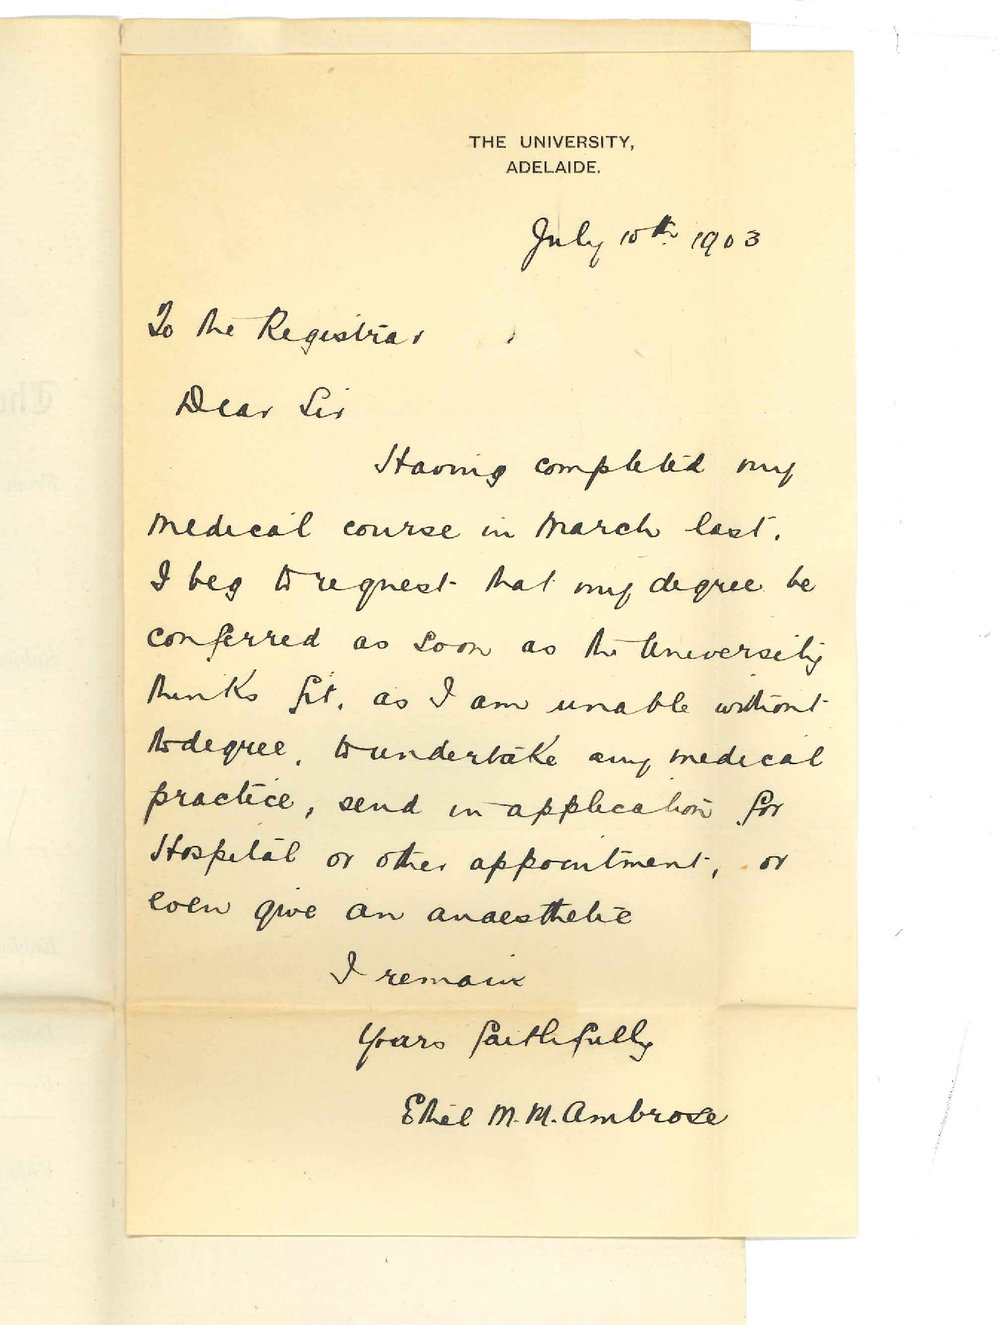 THE UNIVERSITY,
ADELAIDE.
July 10th 1903
To the Registrar
Dear Sir
Having completed my
medical course in March last.
I beg to request that my degree be
conferred as soon as the University
thinks fit, as I am unable without
to degree, to undertake any medical
practice, send in application for
Hospital or other appointment, or
even give an anaesthetic
I remain
Yours faithfully
Ethel M. M. Ambrose